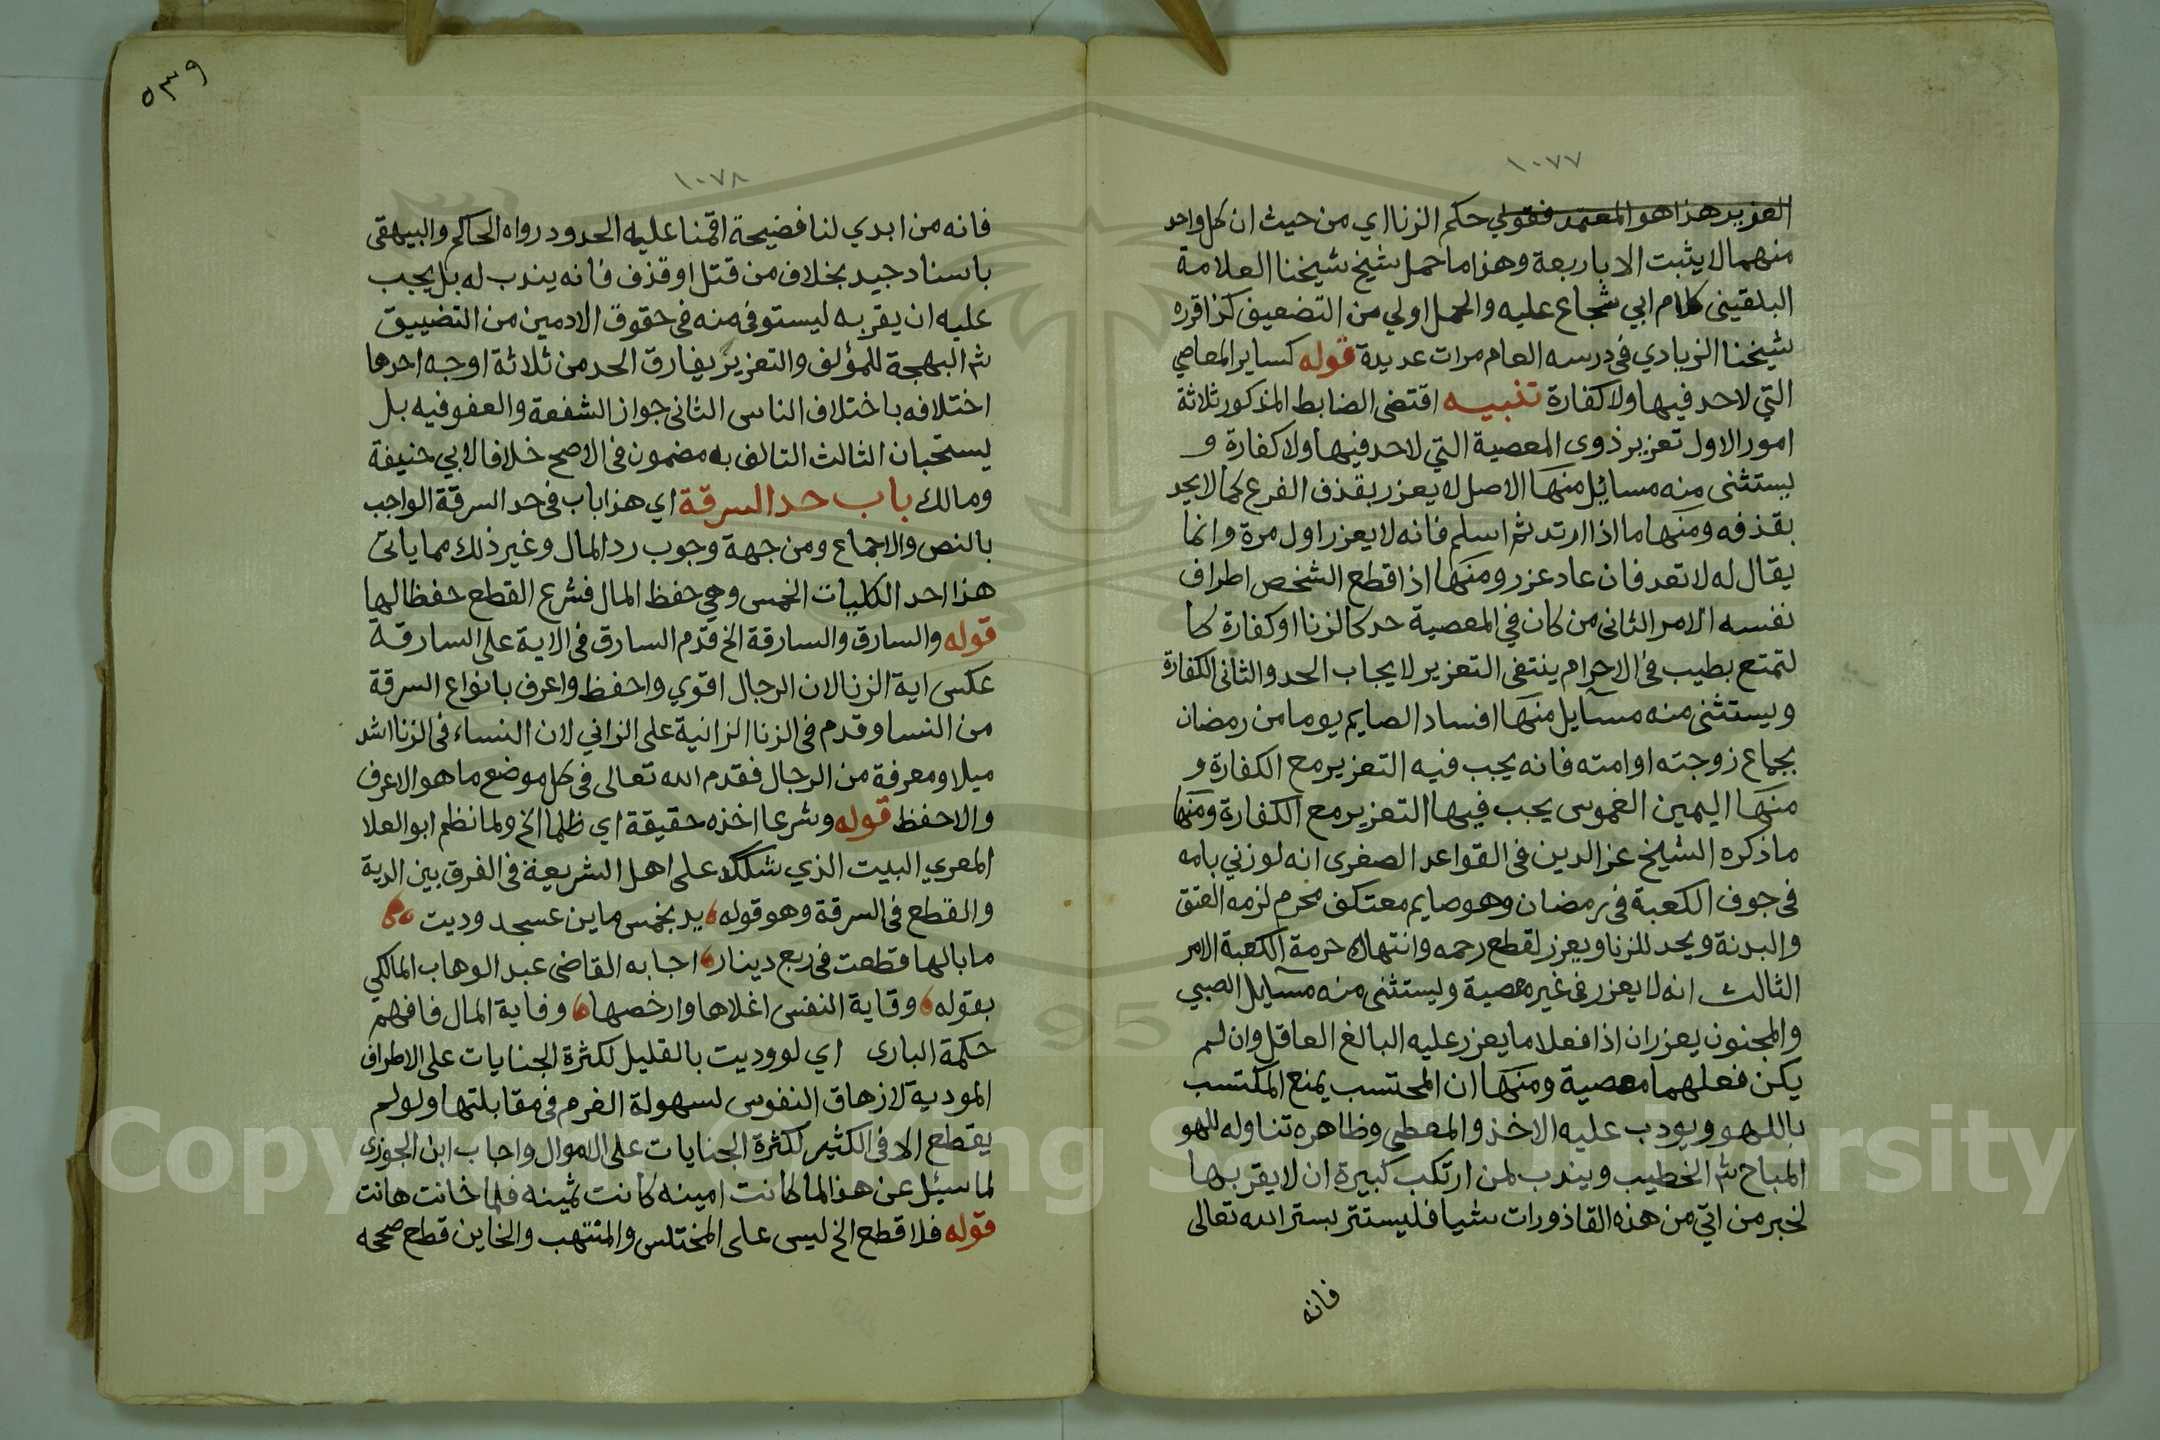 ١٠٧٧
العزيز هذا هو المعتمد فقولي حكم الزنا اي من حيث ان كل واحد
منهما لا يثبت الا باربعة وهذا ما حمل شيخ شيخنا العلامة
البلقيني كلام ابي شجاع عليه والحمل اولي من التضعيف كذا قرره
شيخنا الزيادي في درسه العام مرات عديدة قوله كساير المعاصي
التي لا حد فيها ولا كفارة تنبيه اقتضى الضابط المذكور ثلاثة
امور الاول تعزير ذوى المعصية التي لا حد فيها ولا كفارة و
يستثنى منه مسائل منها الاصل لا يعزر بقذف الفرع كما لا يحد
بقذفه ومنها ما اذا ارتد ثم اسلم فانه لا يعزر اول مرة وانما
يقال له لا تعد فان عاد عزر ومنها اذا قطع الشخص اطراف
نفسه الامر الثانى من كان في المعصية حد كالزنا او كفارة كا
لتمتع بطيب في الاحرام ينتفى التعزير لايجاب الحد والثانى الكفارة
ويستثنى منه مسآيل منها افساد الصايم يوما من رمضان
بجماع زوجته او امته فانه يجب فيه التعزير مع الكفارة و
منها اليمين الغموس يجب فيها التعزير مع الكفارة ومنها
ما ذكره الشيخ عز الدين فى القواعد الصغرى انه لو زني بامه
فى جوف الكعبة فى رمضان وهو صايم معتكف محرم لزمه العتق
والبدنة ويحد للزنا ويعزر لقطع رحمه وانتهاك حرمة الكعبة الامر
الثالث انه لا يعزر فى غير معصية ويستثنى منه مسآيل الصبي
والمجنون يعزران اذا فعلا ما يعزر عليه البالغ العاقل وان لم
يكن فعلهما معصية ومنها ان المحتسب يمنع المكتسب
باللهو ويودب عليه الاخذ والمعطى وظاهره تناوله للهو
المباح شم الخطيب ويندب لمن ارتكب كبيرة ان لا يقر بها
لخبر من اتي من هذه القاذورات شيا فليستتر بستر الله تعالى
فانه
٥٣٩
١٠٧٨
فانه من ابدي لنا فضيحة اقمنا عليه الحدود رواه الحاكم والبيهقى
باسناد جيد بخلاف من قتل او قذف فانه يندب له بل يجب
عليه ان يقر به ليستوفى منه فى حقوق الادمين من التضييق
شم البهجة للمؤلف والتعزير يفارق الحد من ثلاثة اوجه احدها
اختلافه باختلاف الناس الثانى جواز الشفعة والعفو فيه بل
يستحبان الثالث التالف به مضمون فى الاصح خلافا لابي حنيفة
ومالك باب حد السرقة اي هذا باب فى حد السرقة الواجب
بالنص والاجماع ومن جهة وجوب رد المال وغير ذلك مما ياتى
هذا احد الكليات الخمس وهي حفظ المال فشرع القطع حفظا لها
قوله والسارق والسارقة الخ قدم السارق فى الاية على السارقة
عكس اية الزنا لان الرجال اقوي واحفظ واعرف بانواع السرقة
من النسا وقدم فى الزنا الزانية على الزاني لان النساء فى الزنا اشد
ميلا ومعرفة من الرجال فقدم الله تعالى فى كل موضع ما هو الاعرف
والاحفظ قوله وشرعا اخذه حقيقة اي ظلما الخ ولما نظم ابو العلا
المعري البيت الذي شكك على اهل الشريعة فى الفرق بين الدية
والقطع فى السرقة وهو قوله يد بخمس ماين عسجد وديت
ما بالها قطعت فى ربع دينار اجابه القاضى عبد الوهاب المالكي
بقوله وقاية النفس اغلاها وارخصها وقاية المال فافهم
حكمة البارى اي لو وديت بالقليل لكثرة الجنايات على الاطراف
المودية لازهاق النفوس لسهولة الغرم فى مقابلتها ولو لم
يقطع الا فى الكثير لكثرة الجنايات على الاموال واجاب ابن الجوزى
لما سيئل عن هذا لما كانت امينه كانت ثمينه فلما خانت هانت
قوله فلا قطع الخ ليس على المختلس والمنتهب والخاين قطع صححه
Copyright © King Saud University